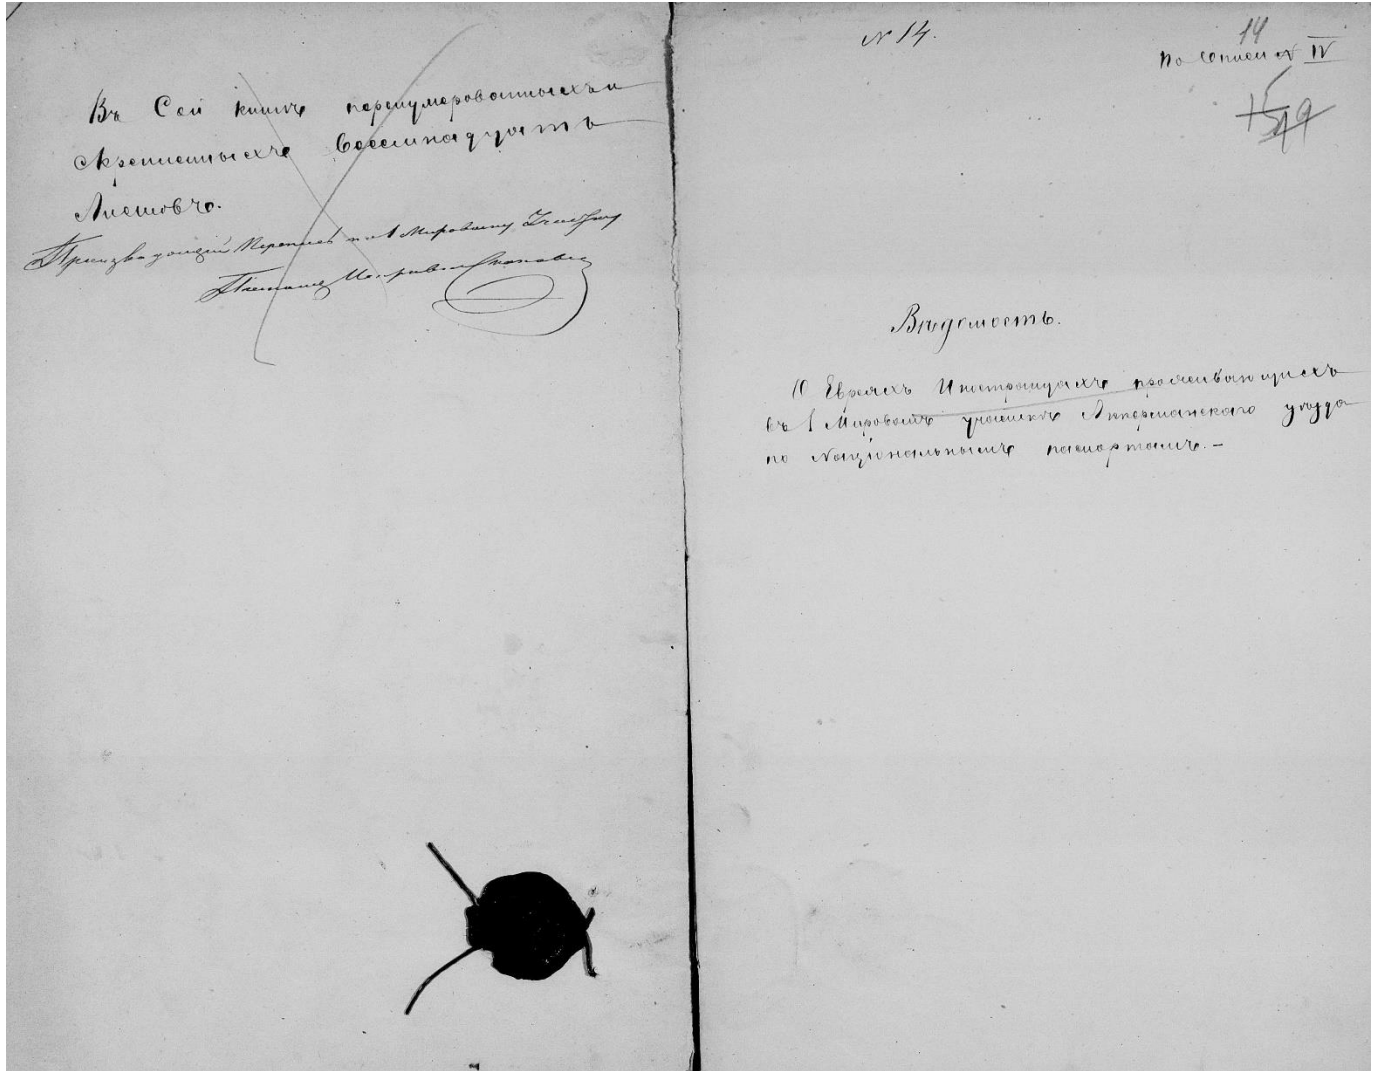 Въ Сей книгѣ перенумерованныхъ и
скрепленныхъ восемнадцать
Листовъ.
Производящій Перепись по 1 Мировому Участку
N 14.
14
по описи № IV
Вѣдомость.
О Евреяхъ Иностранцахъ проживающихъ
въ 1 Мировомъ участкѣ Аккерманскаго уѣзда
по Національнымъ паспортамъ. –